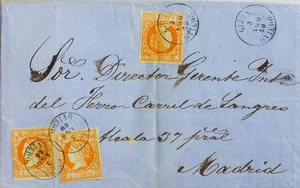 Sor. Director Gerente
del Ferro Carril de Langreo
Alcala 37 pral
Madrid